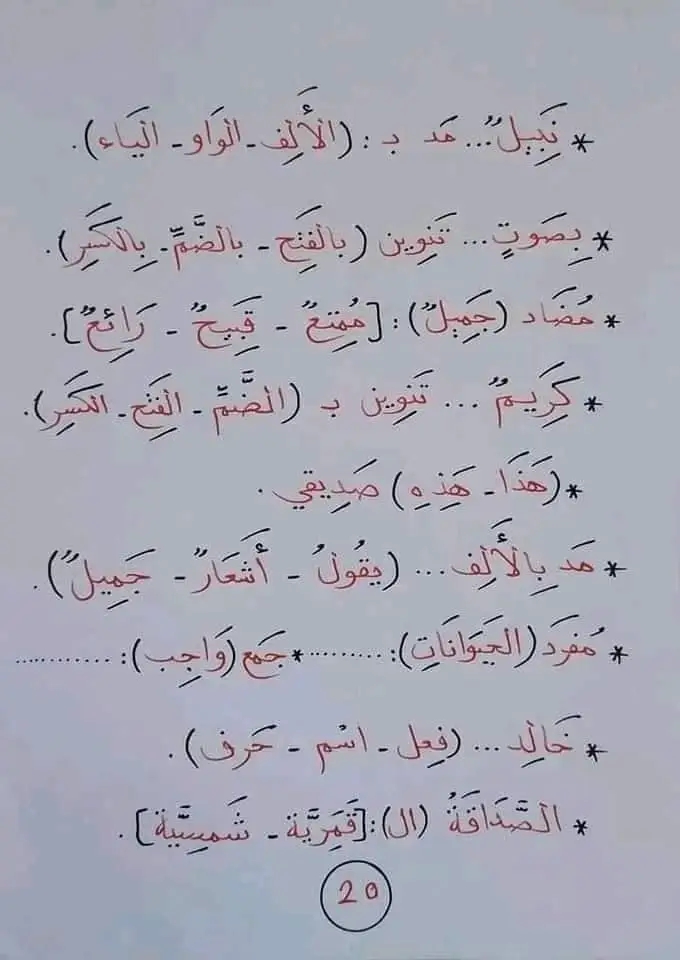 * نَبِيلٌ... مَد بـ : (الْأَلِف - الْوَاو - الْيَاء).
* بِصَوتٍ... تَنوِين (بِالفَتحِ - بالضَّمِّ - بِالكَسرِ).
* مُضَاد (جَمِيلٌ) : [مُمتِعٌ - قَبِيحٌ - رَائِعٌ].
* كَرِيمٌ ... تَنوِين بـ (الضَّمِّ - الفَتحِ - الكَسرِ).
* (هَذَا - هَذِهِ) صَدِيقِي .
* مَد بِالْأَلِف ... (يقُولُ - أَشعَارٌ - جَمِيلٌ).
* مُفرَد (الحَيَوَانَاتِ): ......... * جَمع (وَاجِب): ............
* خَالِد ... (فِعل - اسْم - حَرف).
* الصَّدَاقَةُ (ال): [قَمَرِيَّة - شَمسِيَّة].
20